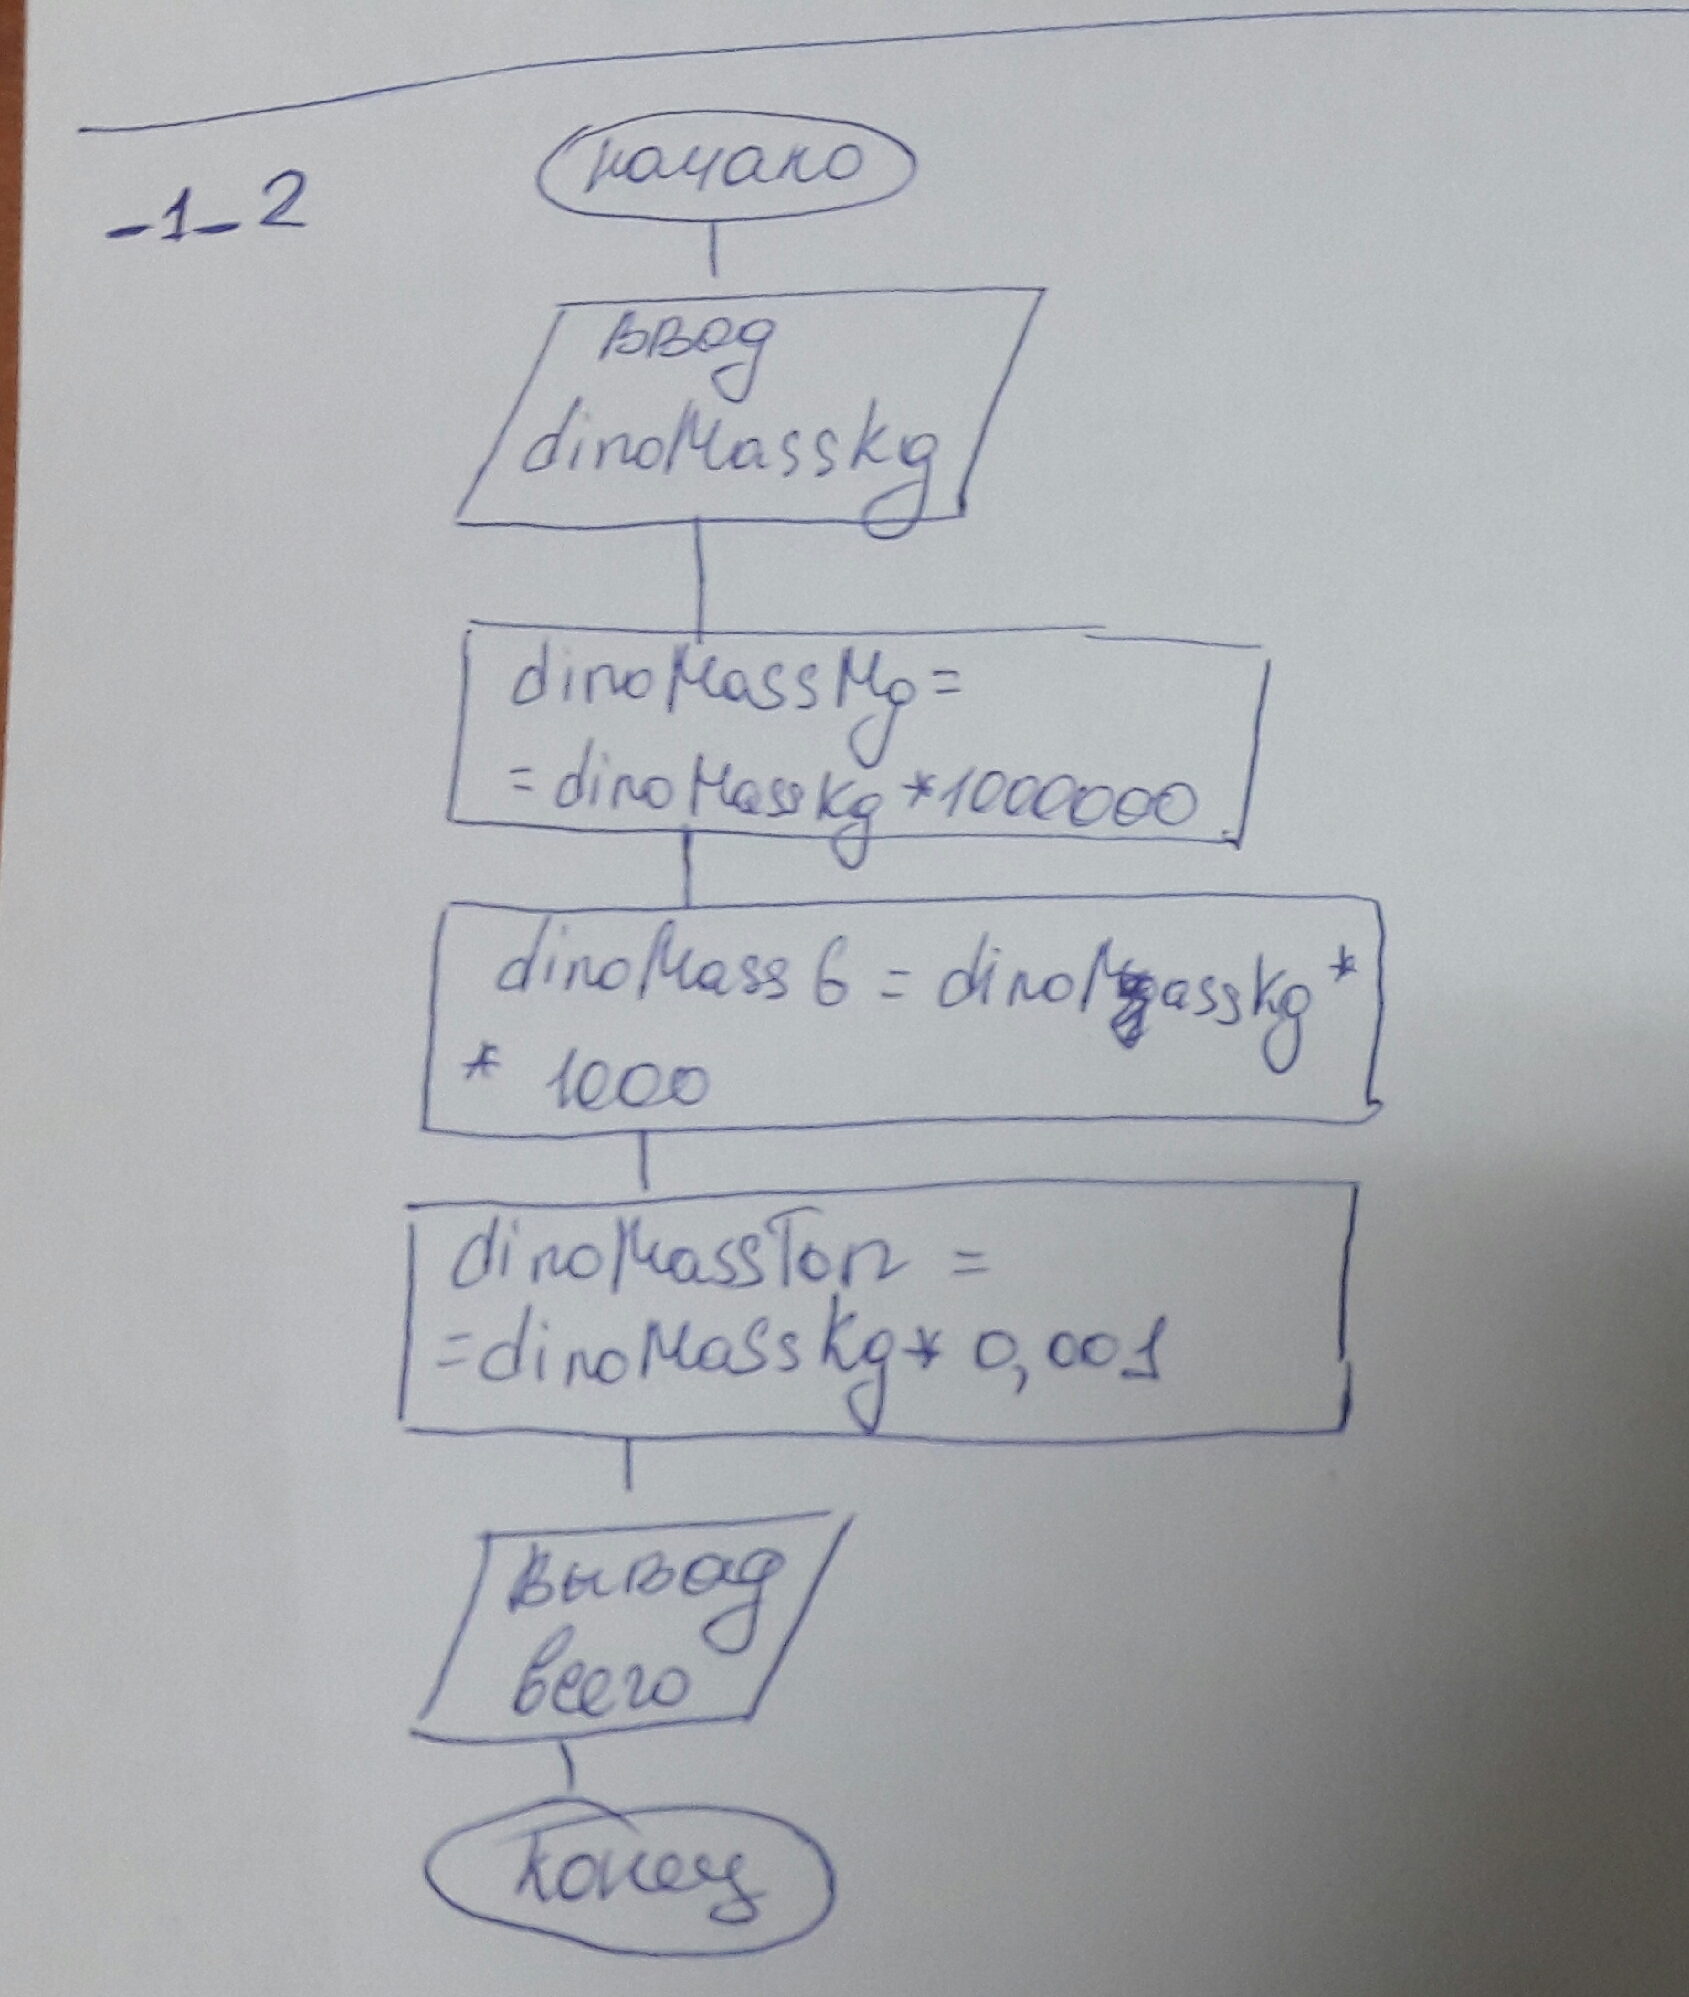 -1-2
начало
ввод
dinoMassKg
dinoMassMg =
= dinoMassKg * 1000000
dinoMassG = dinoMassKg *
* 1000
dinoMassTon =
= dinoMassKg * 0,001
вывод
всего
конец